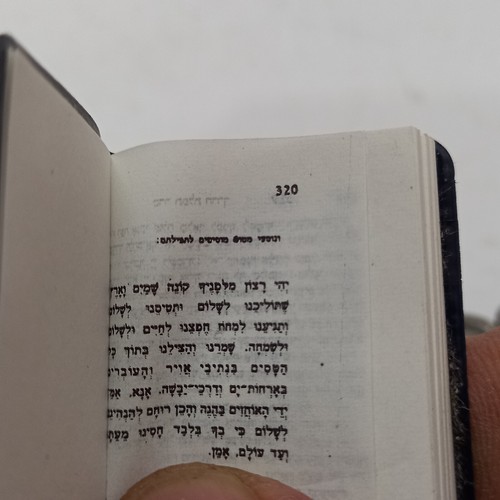 320
ונוסעי מטוס מוסיפים לתפילתם:
יְהִי רָצוֹן מִלְּפָנֶיךָ קוֹנֵה שָׁמַיִם וָאָרֶץ
שֶׁתּוֹלִיכֵנוּ לְשָׁלוֹם וּתְטִיסֵנוּ לְשָׁלוֹם
וְתַגִּיעֵנוּ לִמְחוֹז חֶפְצֵנוּ לְחַיִּים וּלְשָׁלוֹם
וּלְשִׂמְחָה. שָׁמְרֵנוּ וְהַצִּילֵנוּ בְּתוֹךְ כָּל
הַטָּסִים בִּנְתִיבֵי אֲוִיר וְהָעוֹבְרִים
בְּאָרְחוֹת־יָם וְדַרְכֵי־יַבָּשָׁה. אָנָּא, אַמֵּץ
יְדֵי הָאוֹחֲזִים בַּהֶגֶה וְהָכֵן רוּחָם לְהַנְהִיגֵנוּ
לְשָׁלוֹם כִּי בְךָ בִּלְבַד חָסִינוּ מֵעַתָּה
וְעַד עוֹלָם, אָמֵן.